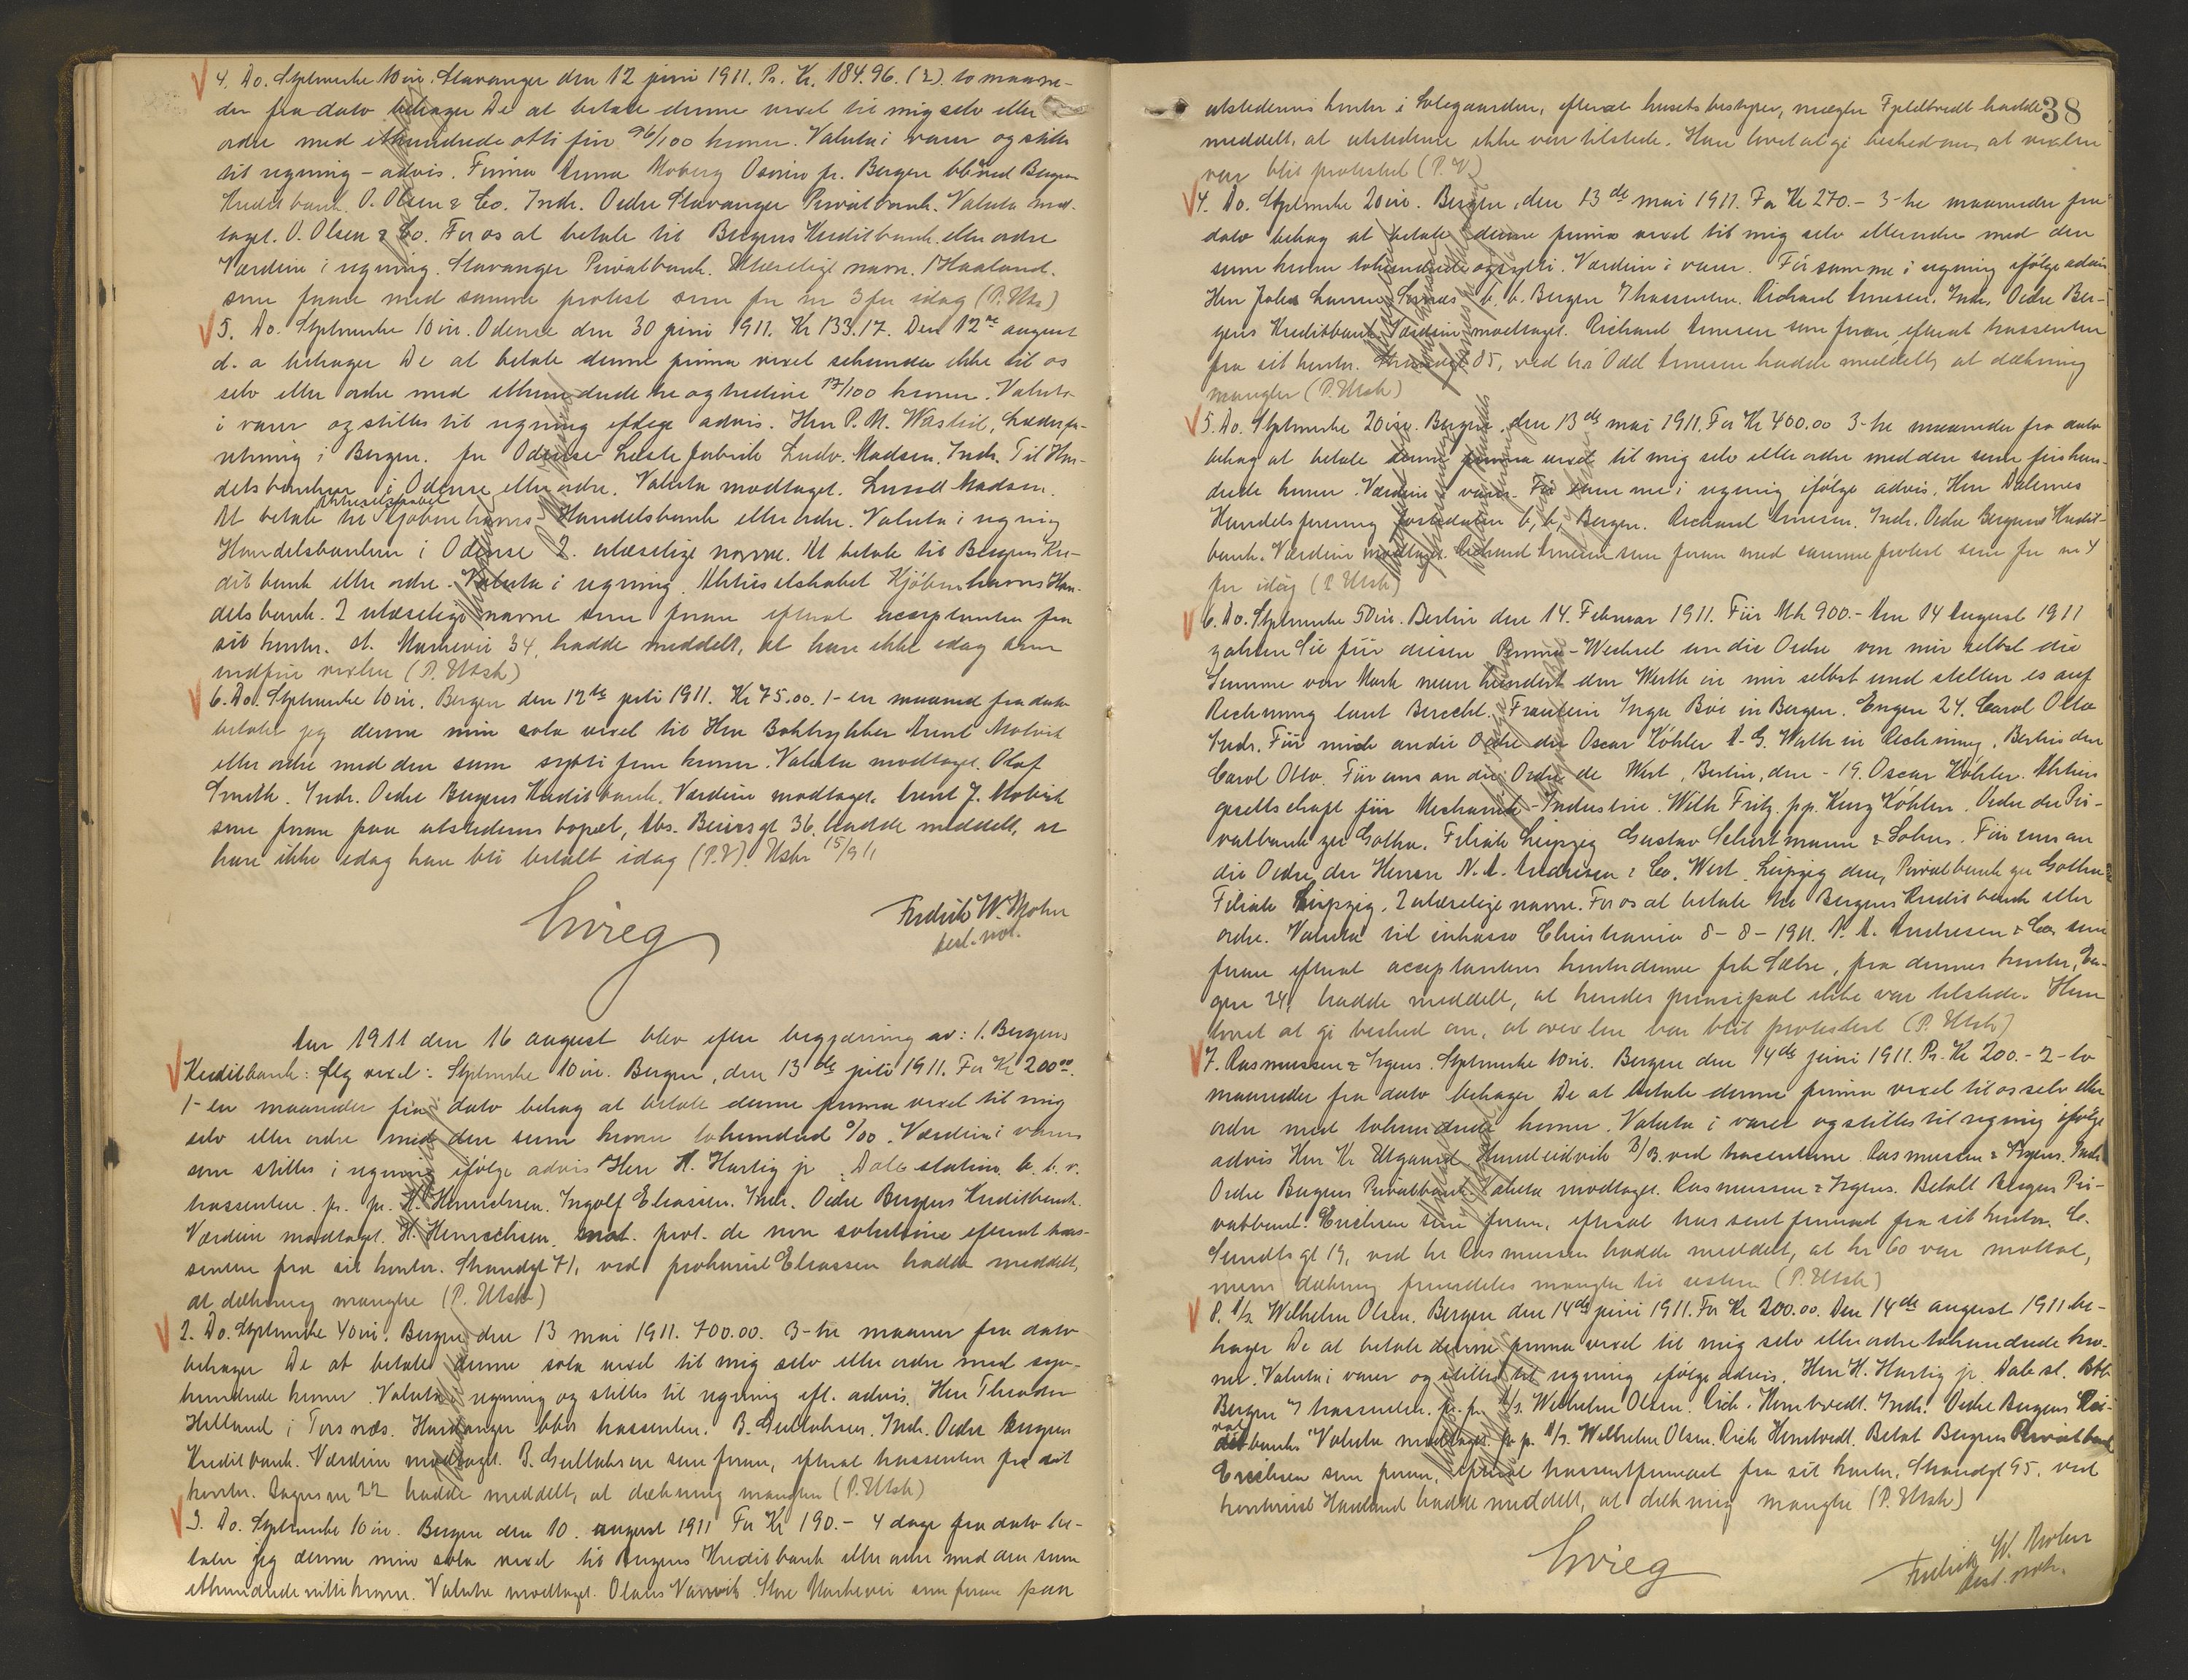 4. Do. Stplmerke 10 øre. Stavanger den 12 juni 1911. Pr. Kr. 184.96. (2) to maane-
der fra dato behager De at betale denne vexel til mig selv eller
ordre med ethundrede otti fire 96/100 kroner. Valuta i varer og stilles
til regning - advis. Firma Anna Moberg Osøren pr. Bergen bbl ved Bergens
Kreditbank. O. Olsen & Co. Indr. Ordre Stavanger Privatbank. Valuta mod-
taget. O. Olsen & Co. For os at betale til Bergens Kreditbank eller ordre
Værdien i regning. Stavanger Privatbank. Ulæseligt navn. Haaland.
som foran med samme protest som for nr 3 før idag (P. Utsk)
5. Do. Stplmerke 10 øre. Odense den 30 juni 1911. Kr 133.17. Den 12te august
d. a behager De at betale denne prima vexel sekunda ikke til os
selv eller ordre med ethundrede tre og tredive 17/100 kroner. Valuta
i varer og stilles til regning ifølge advis. Herr P. M. Wastil, Læderfor-
retning i Bergen. for Odense Læstefabrik Ludv. Madsen. Indr. Til Han-
delsbanken i Odense eller ordre. Valuta modtaget. Ludv Madsen.
At betale til Aktieselskabet Kjøbenhavns Handelsbank eller ordre. Valuta i regning
Handelsbanken i Odense 2. ulæselige navne. At betale til Bergens Kre-
ditbank eller ordre. Valuta i regning. Aktieselskabet Kjøbenhavns Han-
delsbank. 2 ulæselige navne som foran efterat acceptanten fra
sit kontor. st. Markevei 34, hadde meddelt, at han ikke idag kan
indfri vexlen (P. Utsk)
6. Do. Stplmerke 10 øre. Bergen den 12te juli 1911. Kr 75.00. 1 - en maaned fra dato
betaler jeg denne min sola vexel til Herr Boktrykker Arent Motvik
eller ordre med den sum sytti fem kroner. Valuta modtaget. Olaf
Smith. Indr. Ordre Bergens Kreditbank. Værdien modtaget. Arent J. Motvik
som foran paa utstederens bopæl, Abs. Beiersgt 36, hadde meddelt, at
han ikke idag kan bli betalt idag (P.V). Utskr 15/9 11
Grieg
Fredrik W. Mohn
best. not.
Aar 1911 den 16 august blev efter begjæring av: 1. Bergens
Kreditbank: flg vexel: Stplmerke 10 øre. Bergen, den 13de juli 1911. For Kr 200.00.
1 - en maaneder fra dato behag at betale denne prima vexel til mig
selv eller ordre med den sum kroner tohundred 0/00. Værdien i varer
som stilles i regning ifølge advis Herr H. Hartig jr. Dale station b. b. v.
trassenten. pr. pr. H. Henrichsen. Ingolf Eliassen. Indr. Ordre Bergens Kreditbank.
Værdien modtaget. H. Henrichsen. prot. de non solutione efterat tras-
senten fra sit kontor. Strandgt 71, ved prokurist Eliassen hadde meddelt,
at dækning mangler (P. Utsk)
2. Do. Stplmerke 40 øre. Bergen den 13 mai 1911. 700.00. 3 - tre maaner fra dato
behager De at betale denne sola vexel til mig selv eller ordre med syv-
hundrede kroner. Valuta i regning og stilles til regning efl. advis. Herr Theodor
Helland i Torsnæs. Hardanger bbhos trassenten. B. Gullaksen. Indr. Ordre Bergens
Kreditbank. Værdien modtaget. B. Gullaksen som foran, efterat trassenten fra sit
kontor. nr 22 hadde meddelt, at dækning mangler (P. Utsk)
3. Do. Stplmerke 10 øre. Bergen den 10. august 1911 For Kr 190.- 4 dage fra dato be-
taler jeg denne min sola vexel til Bergens Kreditbank eller ordre med den sum
ethundrede nitti kroner. Valuta modtaget. Olaus Varvik. Store Markevei som foran paa
38
utstederens kontor i Solegaarden, efterat husets bestyrer, mægler Fjeldtvedt hadde
meddelt, at utstederen ikke var tilstede. Han lovet at gi beskjed om, at vexelen
var blit protestert (P. V)
4. Do. Stplmerke 20 øre. Bergen, den 13de mai 1911. For Kr 270.- 3 - tre maaneder fra
dato behag at betale denne prima vexel til mig selv eller ordre med den
sum kroner tohundrede og sytti. Værdien i varer. Før samme i regning ifølge advis
Herr Johs Larsen, b. b. Bergen Trassenten. Richard Arnesen. Indr. Ordre Ber-
gens Kreditbank. Værdien modtaget. Richard Arnesen som foran, efterat trassenten
fra sit kontor. Strandgt 85, ved hr Odd Arnesen hadde meddelt, at dækning
mangler (P. Utsk)
5. Do. Stplmerke 20 øre. Bergen, den 13de mai 1911. For Kr 400.00 3 - tre maaneder fra dato
behag at betale denne prima vexel til mig selv eller ordre med den sum firehun-
drede kroner. Værdien i varer. Før samme i regning ifølge advis. Herr Dalernes
Handelsforening b. b. Bergen. Richard Arnesen. Indr. Ordre Bergens Kredit-
bank. Værdien modtaget. Richard Arnesen som foran med samme protest som for nr 4
før idag (P. Utsk)
6. Do. Stplmerke 50 øre. Berlin den 14. Februar 1911. Für Mk 900.- Am 14 August 1911
zahlen Sie für diesen Prima-Wechsel an die Ordre von mir selbst die
Summe von Mark neun hundert den Werth in mir selbst und stellen es auf
Rechnung laut Bericht. Fraulein Inga Bøe in Bergen. Engen 24. Carol Otto
Indr. Für mich an die Ordre der Oscar Köhler A-G. Werth in Rechnung. Berlin den
Carol Otto. Für uns an die Ordre de Wert, Berlin, den - 19. Oscar Köhler. Aktien
gesellschaft für Mechanik-Industrie. Wilh Fritz. pp. Kurz Köhler. Ordre der Pri-
vatbank zu Gotha. Filiale Leipzig Gustav Schortmann & Söhne. Für uns an
die Ordre der Herren N. A. Andresen & Co. Wert. Leipzig den, Privatbank zu Gotha
Filiale Leipzig. 2 ulæselige navne. For os at betale til Bergens Kreditbank eller
ordre. Valuta til inkasso Christiania 8 - 8 - 1911. N. A. Andresen & Co. som
foran efterat acceptantens kontordame frk Sætre, fra dennes kontor, En-
gen 24, hadde meddelt, at hendes principal ikke var tilstede. Hun
lovet at gi besked om, at vexelen var blit protestert (P. Utsk)
7. Rasmussen & Irgens. Stplmerke 10 øre. Bergen den 14de juni 1911. Pr. Kr 200.- 2 - to
maaneder fra dato behager De at betale denne prima vexel til os selv eller
ordre med tohundrede kroner. Valuta i varer og stilles til regning ifølge
advis Herr Kr Utgaard Hundeidvik B/B. ved trasenterne. Rasmussen & Irgens. Indr
Ordre Bergens Privatbank. Valuta modtaget. Rasmussen & Irgens. Betalt Bergens Pri-
vatbank. Erichsen som foran, efterat trassent formand fra sit kontor. C.
Sundtsgt 19, ved hr Rasmussen hadde meddelt, at kr 60 var mottat,
mens dækning fremdeles mangler til resten (P. Utsk)
8. A/S. Wilhelm Olsen. Bergen den 14de juni 1911. For Kr 200.00. Den 14de august 1911 be-
hager De at betale denne prima vexel til mig selv eller ordre tohundrede kro-
ner. Valuta i varer og stilles til regning ifølge advis. Herr H. Hartig jr. Dale st. Bbl
Bergen Trassenten. pr. pr. A/S. Wilhelm Olsen. Rich. Homtvedt. Indr. Ordre Bergens Pri-
vatbank. Valuta modtaget. pr. p. A/S. Wilhelm Olsen. Rich Homtvedt. Betal Bergens Privatbank
Erichsen som foran, efterat trassentformand fra sit kontor, Strandgt 95, ved
kontorist Haaland hadde meddelt, at dækning mangler (P. Utsk)
Grieg
Fredrik W. Mohn
best. not.